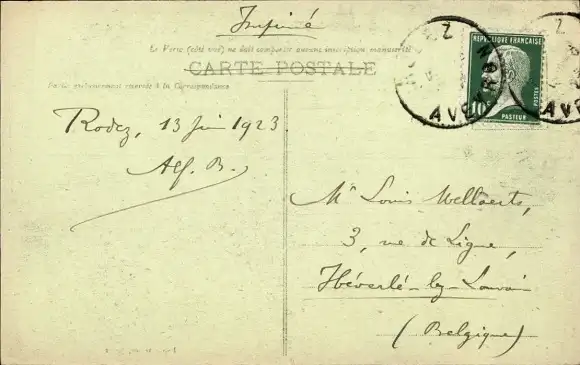 Imprimé
Le Verso (côté vue) ne doit comporter aucune inscription manuscrite
CARTE POSTALE
Partie exclusivement réservée à la Correspondance
RODEZ
AVEYRON
REPUBLIQUE FRANÇAISE
10c
POSTES
PASTEUR
Z
AVE
Rodez, 13 Juin 1923.
Alf. B.
Mr Louis Wellaerts,
3, rue de Ligne,
Héverlé-lez-Louvain
(Belgique)